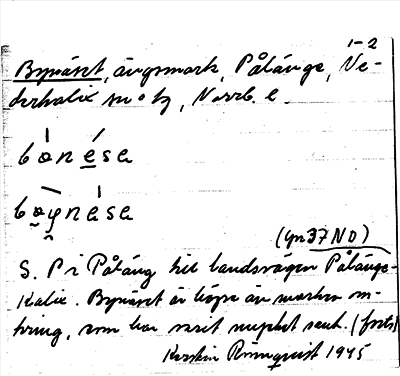 1-2
Bynäset, ängsmark, Pålänge, Ne-
derkalix sn o tg, Norrb. l.
bònésa
boynèsa
(Gn37NO)
S. P i Påläng till landsvägen Pålänge-
Kalix. Bynäset är högre än marken om-
kring, som har varit mycket sank. (forts)
Kerstin Rönnquist 1945